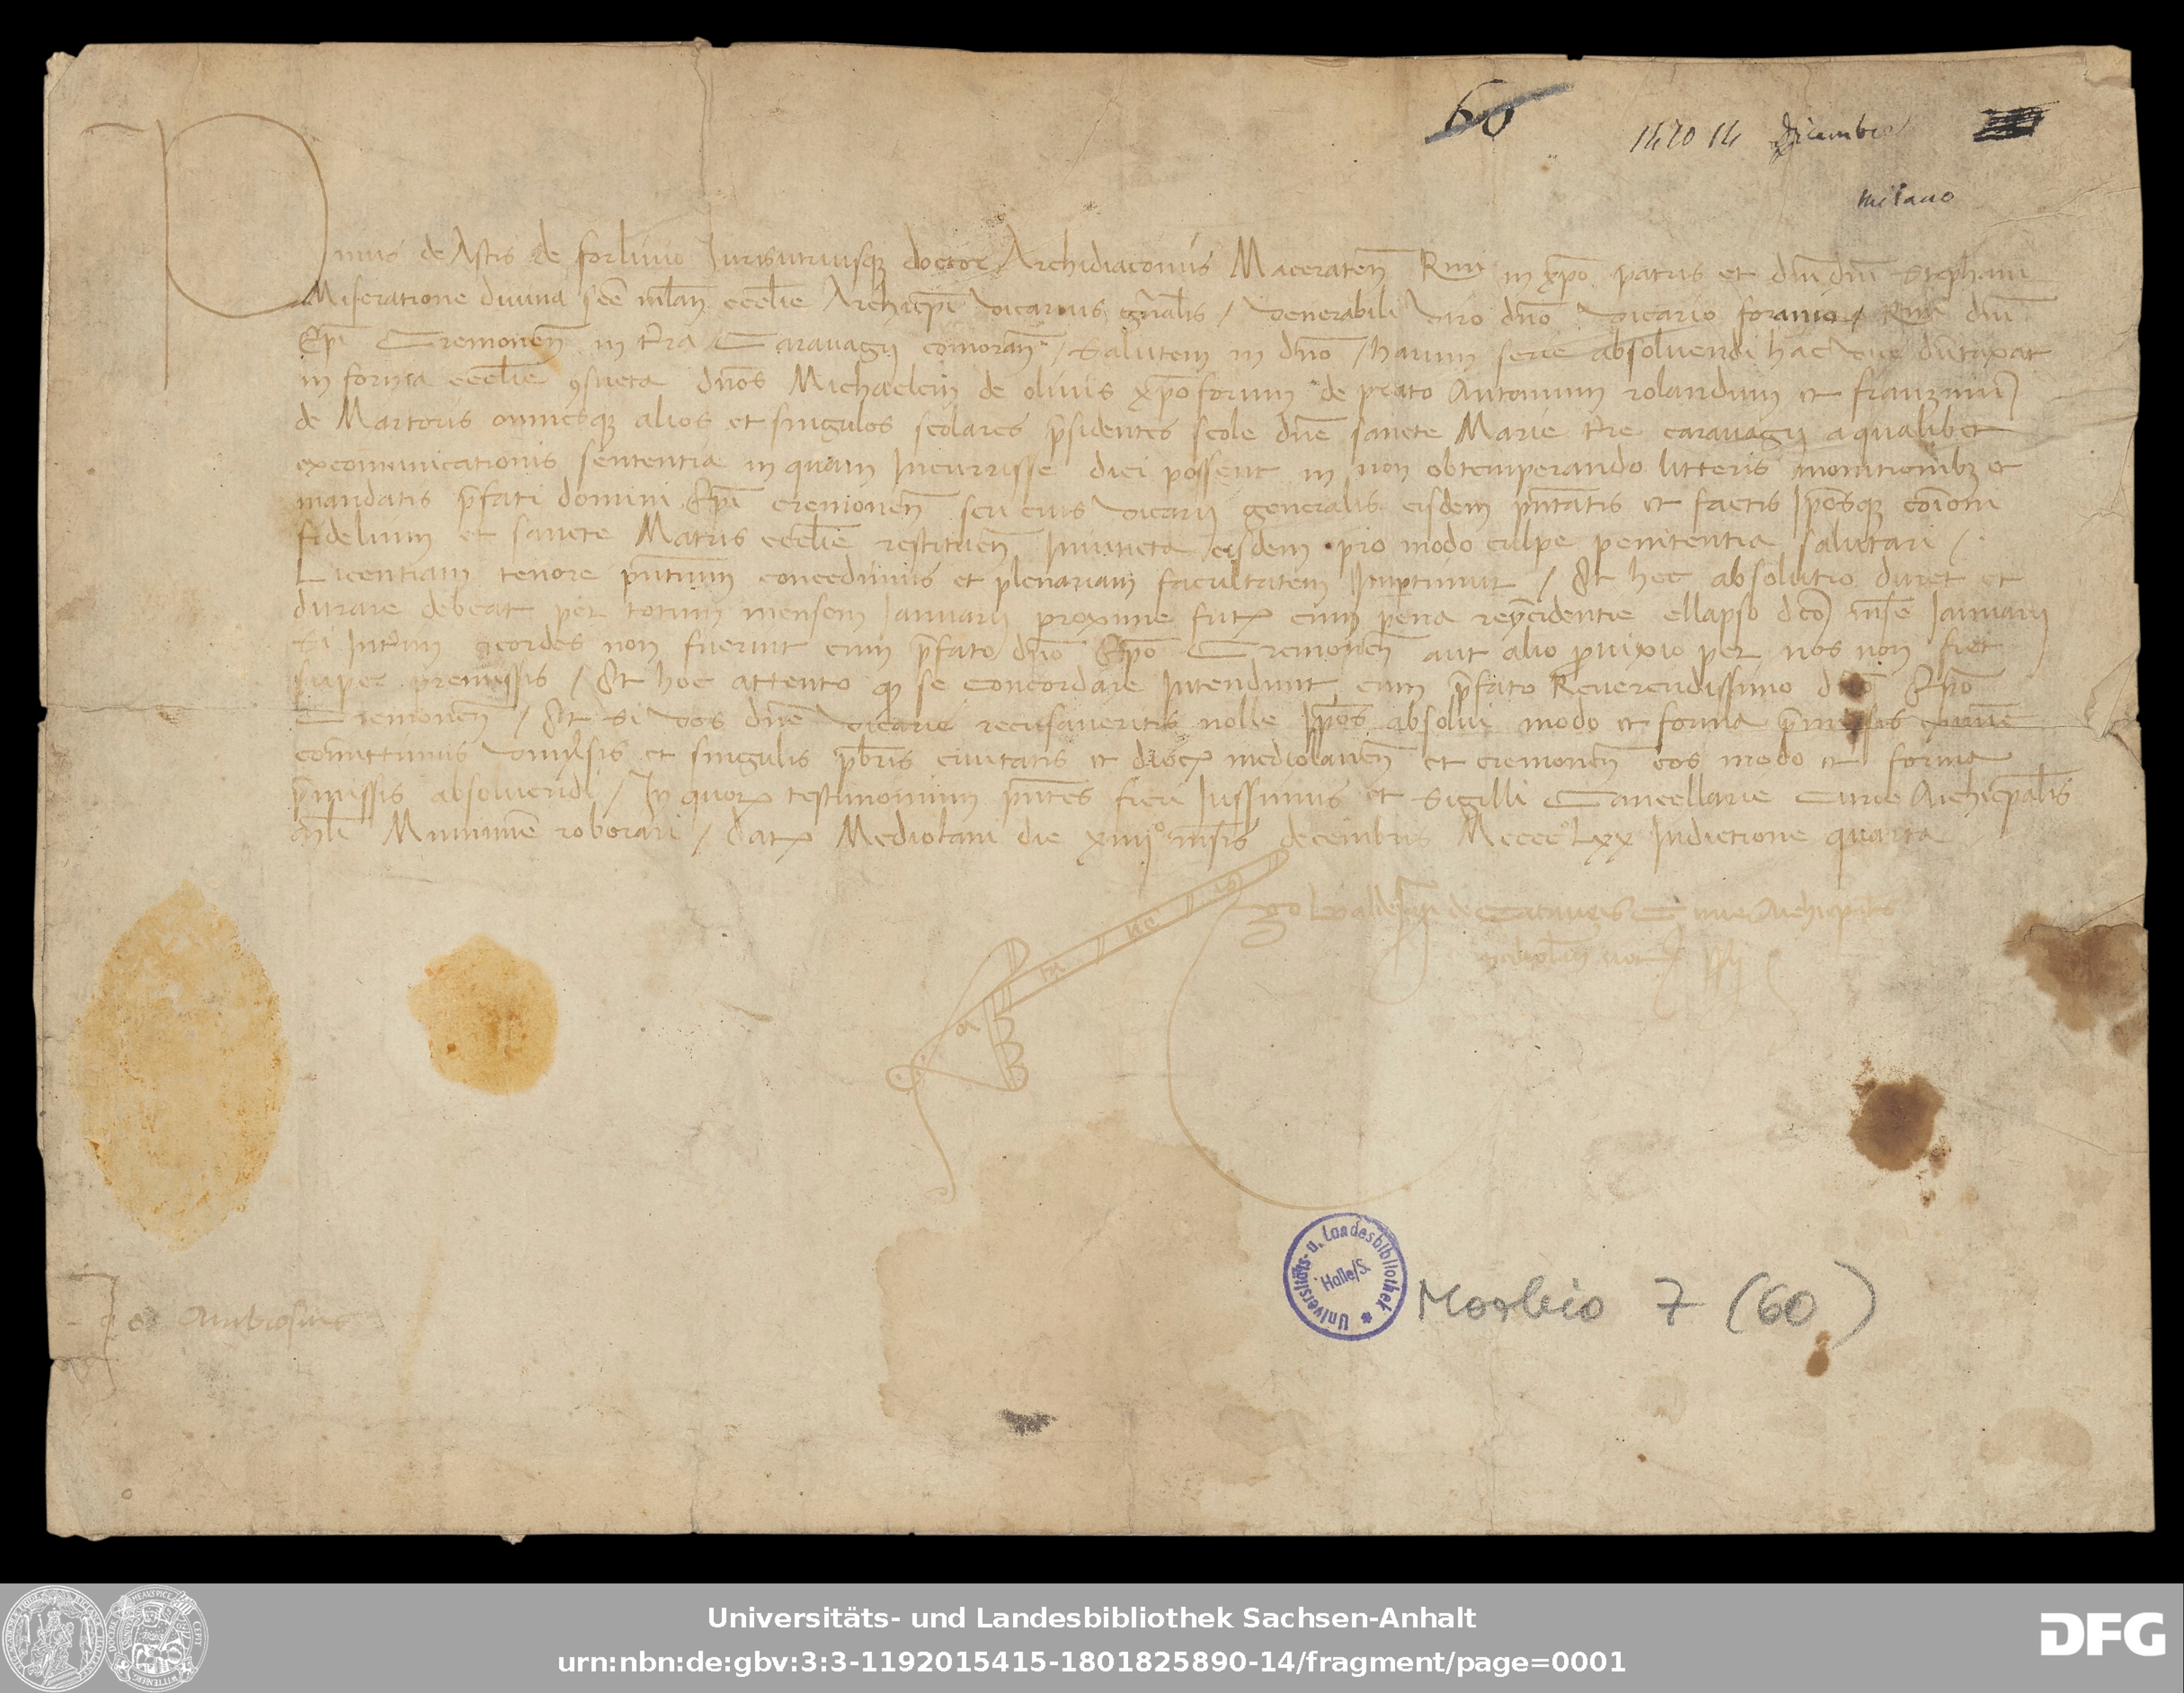 60
1470 14 Dicembre
Milano
Pinus de Astis de forlivio Jurisutriusq3 doctor Archidiaconus Maceraten̄ Rmi in xp̄o patris et dn̄i dn̄i Stephani
Miseratione divina sc̄e ml̄an̄ eccl̄ie Archiep̄i vicarius gn̄alis / Venerabili viro dn̄o vicario foraneo / Rmi dn̄i
Ep̄i Cremonen̄ in t̄ra Caravagij comoran̄ / Salutem in dn̄o / harum serie absolvendi hac vice dūtaxat
in forma eccl̄ie ꝯsueta dn̄os Michaelem de olivis xp̄oforum de prato Antonium rolandum et franzinū
de Martoris omnesq3 alios et singulos scolares p̄sidentes scole dn̄e sancte Marie t̄re caravagij a qualibet
excomunicationis sententia in quam Incurrisse dici possent in non obtemperando litteris monitionib3 et
mandatis p̄fati domini Ep̄i cremonen̄ seu eius vicarij generalis eisdem pn̄tatis et factis Ip̄osq3 cōioni
fidelium et sancte Matris eccl̄ie restituen̄ Iniuncta eisdem pro modo culpe penitentia salutari /
Licentiam tenore pn̄tium concedimus et plenariam facultatem Impartimur / Et hec absolutio duret et
durare debeat per totum mensem Januarij proxime futꝝ cum pena reincidentie ellapso dc̄o mēse Januarij
Si Int̄im ꝯcordes non fuerint cum p̄fato dn̄o Ep̄o Cremonen̄ aut alio per nos non fiet
super premissis / Et hoc attento qꝫ se concordare Intendunt cum p̄fato Reverendissimo dn̄o Ep̄o
Cremonen̄ / Et si vos dn̄e vicarie recusaveritis nolle Ip̄os absolvi modo et forma p̄missis
comittimus vniv̄sis et singulis p̄bris civitatis et dioc̄ mediolanen̄ et cremonen̄ eos modo et forma
p̄missis absolvendi / In quorꝝ testimonium pn̄tes fieri Jussimus et Sigilli Cancellarie Curie Archiep̄alis
Ml̄i Munimine roborari / Datꝝ Mediolani die xiiijº mēsis decembris Mcccc°Lxx Indictione quarta
Ego
Ambrosius
Universitäts- u. Landesbibliothek
Halle/S.
Morbio 7 (60)
Universitäts- und Landesbibliothek Sachsen-Anhalt
urn:nbn:de:gbv:3:3-1192015415-1801825890-14/fragment/page=0001
DFG